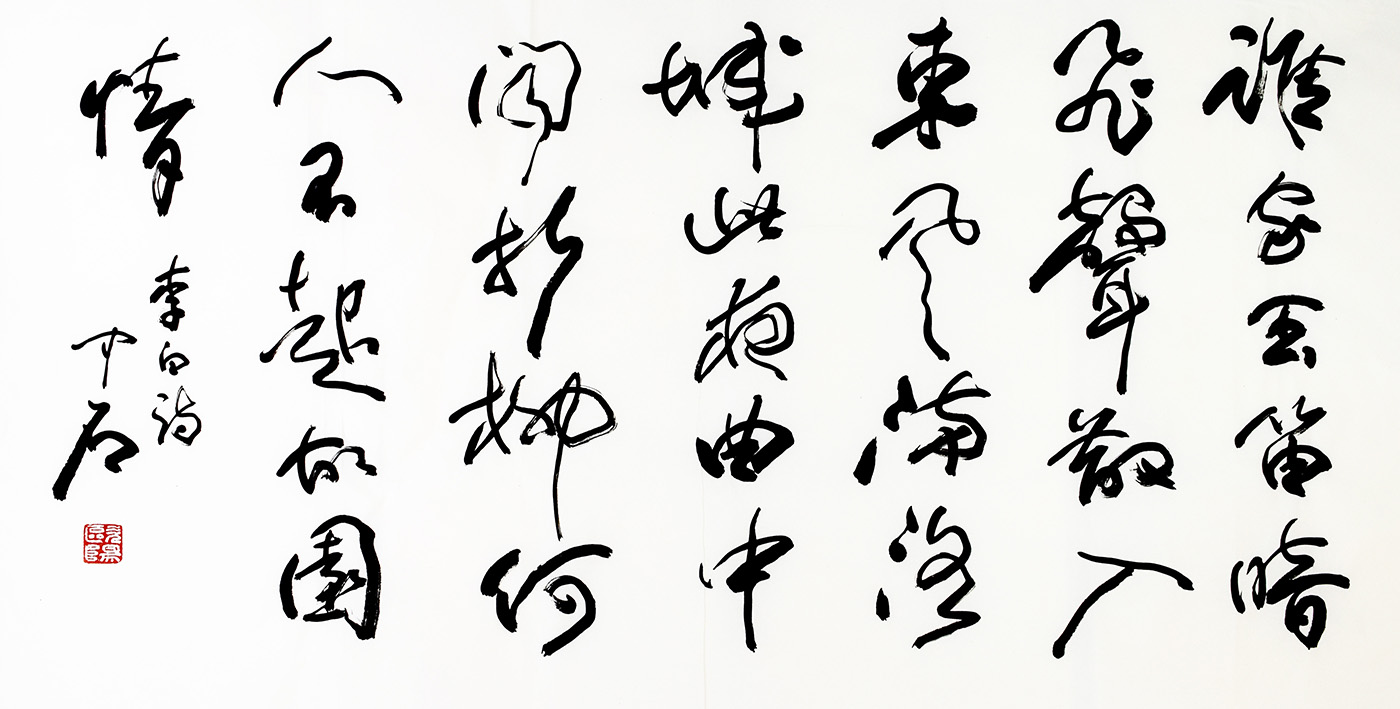 誰家玉笛暗
飛聲散入
東風滿洛
城此夜曲中
聞折柳何
人不起故園
情
李白詩
中石